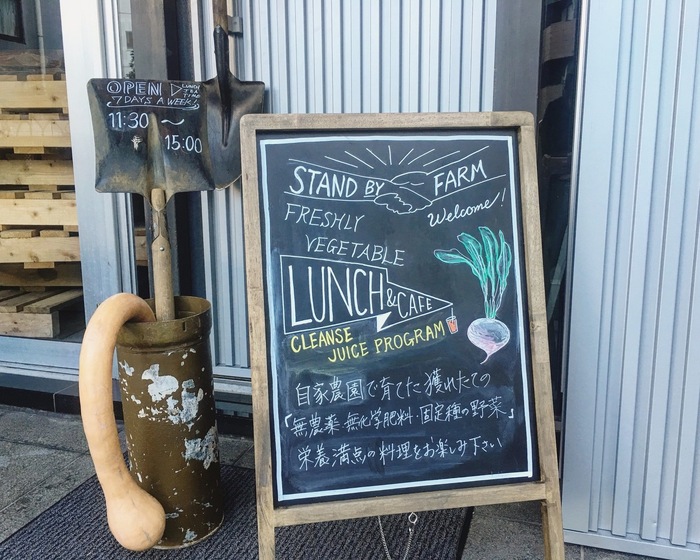 OPEN
LUNCH
TEA
TIME
7 DAYS A WEEK!
11:30 ～
15:00
STAND BY FARM
Welcome!
FRESHLY
VEGETABLE
LUNCH & CAFE
CLEANSE
JUICE PROGRAM
自家農園で育てた獲れたての
「無農薬・無化学肥料・固定種の野菜」
栄養満点の料理をお楽しみ下さい